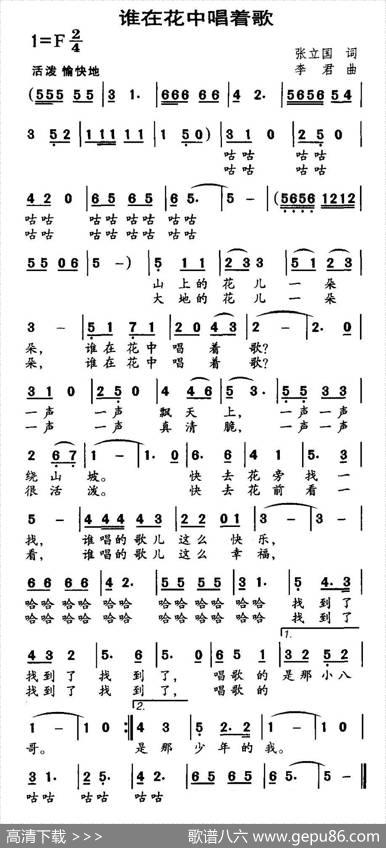 谁在花中唱着歌
1=F 2/4
活泼 愉快地
张立国 词
李君 曲
(555 55 | 3 1. | 666 66 | 4 2. | 5656 54 |
3 52 | 11 11 | 1 50) | 31 0 | 25 0 |
咕咕 咕咕
咕咕 咕咕
42 0 | 65 65 | 65. | 5 - | (5656 1212 |
咕咕 咕咕 咕咕 咕咕
咕咕 咕咕 咕咕 咕咕
55 06 | 5 -) | 5 11 | 233 | 5 233 |
山上的花儿一朵
大地的花儿一朵
3 - | 51 71 | 20 43 | 2 - | 2. 0 |
朵, 谁在花中唱着歌?
朵, 谁在花中唱着歌?
31 0 | 25 0 | 4 46 | 5 3. | 55 33 |
一声 一声 飘天上, 一声一声
一声 一声 真清脆, 一声一声
2 67 | 1 - | 1. 0 | 6. 6 | 41 | 5. 3 |
绕山坡。 快去花旁找一
很活泼。 快去花前看一
5 - | 44 43 | 22 01 | 3 - | 3 - |
找, 谁唱的歌儿这么快乐,
看, 谁唱的歌儿这么幸福,
66 66 | 42. | 55 55 | 31. | 5 4.3 |
哈哈哈哈 哈哈 哈哈哈哈 哈哈 找到了
哈哈哈哈 哈哈 哈哈哈哈 哈哈 找到了
1.
432 | 5. 6 | 5. 0 | 6 51 | 32 52 |
找到了 找到了, 唱歌的是那小八
找到了 找到了, 唱歌的
2.
1 - | 1 0 :‖ 4 3 | 5 2.2 | 1 - | 1 0 |
哥。 是那少年的我。
31. | 25. | 42. | 65 65 | 65. | 5 - ‖
咕咕 咕咕
高清下载 >>>
歌谱八六 www.gepu86.com